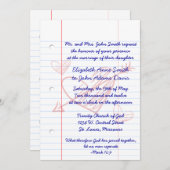 Mr. and Mrs. John Smith request
the honour of your presence
at the marriage of their daughter
Elizabeth Anne Smith
to John Adams Davis
Saturday, the 19th of May
two thousand and twelve
at two o'clock in the afternoon
Trinity Church of God
1234 W. Central Street
St. Louis, Missouri
What therefore God has joined together,
let no man separate
Mark 10:9